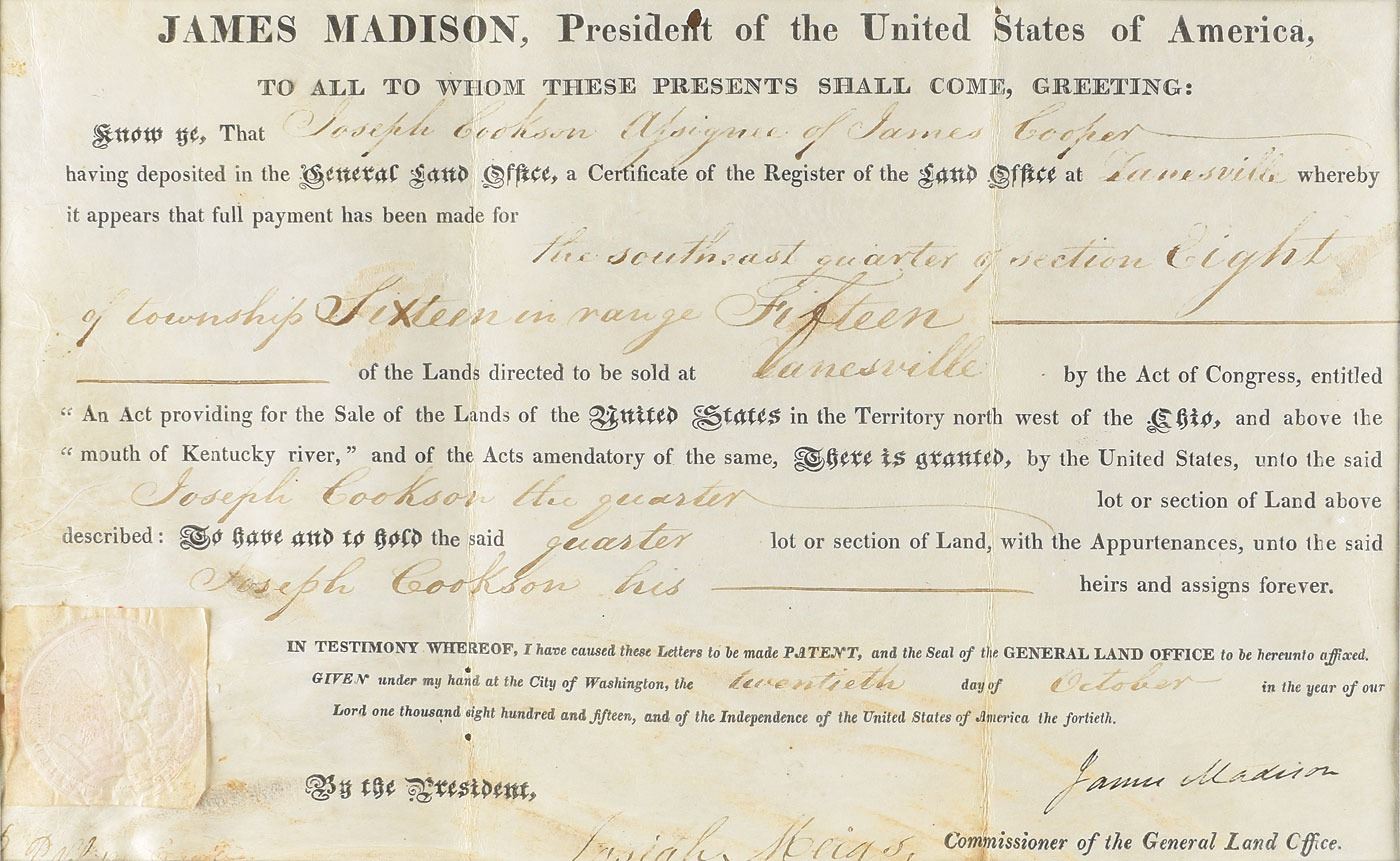 JAMES MADISON, President of the United States of America,
TO ALL TO WHOM THESE PRESENTS SHALL COME, GREETING:
Know ye, That Joseph Cookson Assignee of James Cooper
having deposited in the General Land Office, a Certificate of the Register of the Land Office at Zanesville whereby
it appears that full payment has been made for
the southeast quarter of section Eight
of township Sixteen in range Fifteen
of the Lands directed to be sold at Zanesville by the Act of Congress, entitled
“ An Act providing for the Sale of the Lands of the United States in the Territory north west of the Ohio, and above the
“ mouth of Kentucky river,” and of the Acts amendatory of the same, There is granted, by the United States, unto the said
Joseph Cookson the quarter lot or section of Land above
described: To have and to hold the said quarter lot or section of Land, with the Appurtenances, unto the said
Joseph Cookson his heirs and assigns forever.
IN TESTIMONY WHEREOF, I have caused these Letters to be made PATENT, and the Seal of the GENERAL LAND OFFICE to be hereunto affixed.
GIVEN under my hand at the City of Washington, the twentieth day of October in the year of our
Lord one thousand eight hundred and fifteen, and of the Independence of the United States of America the fortieth.
James Madison
By the President,
Josiah Meigs, Commissioner of the General Land Office.